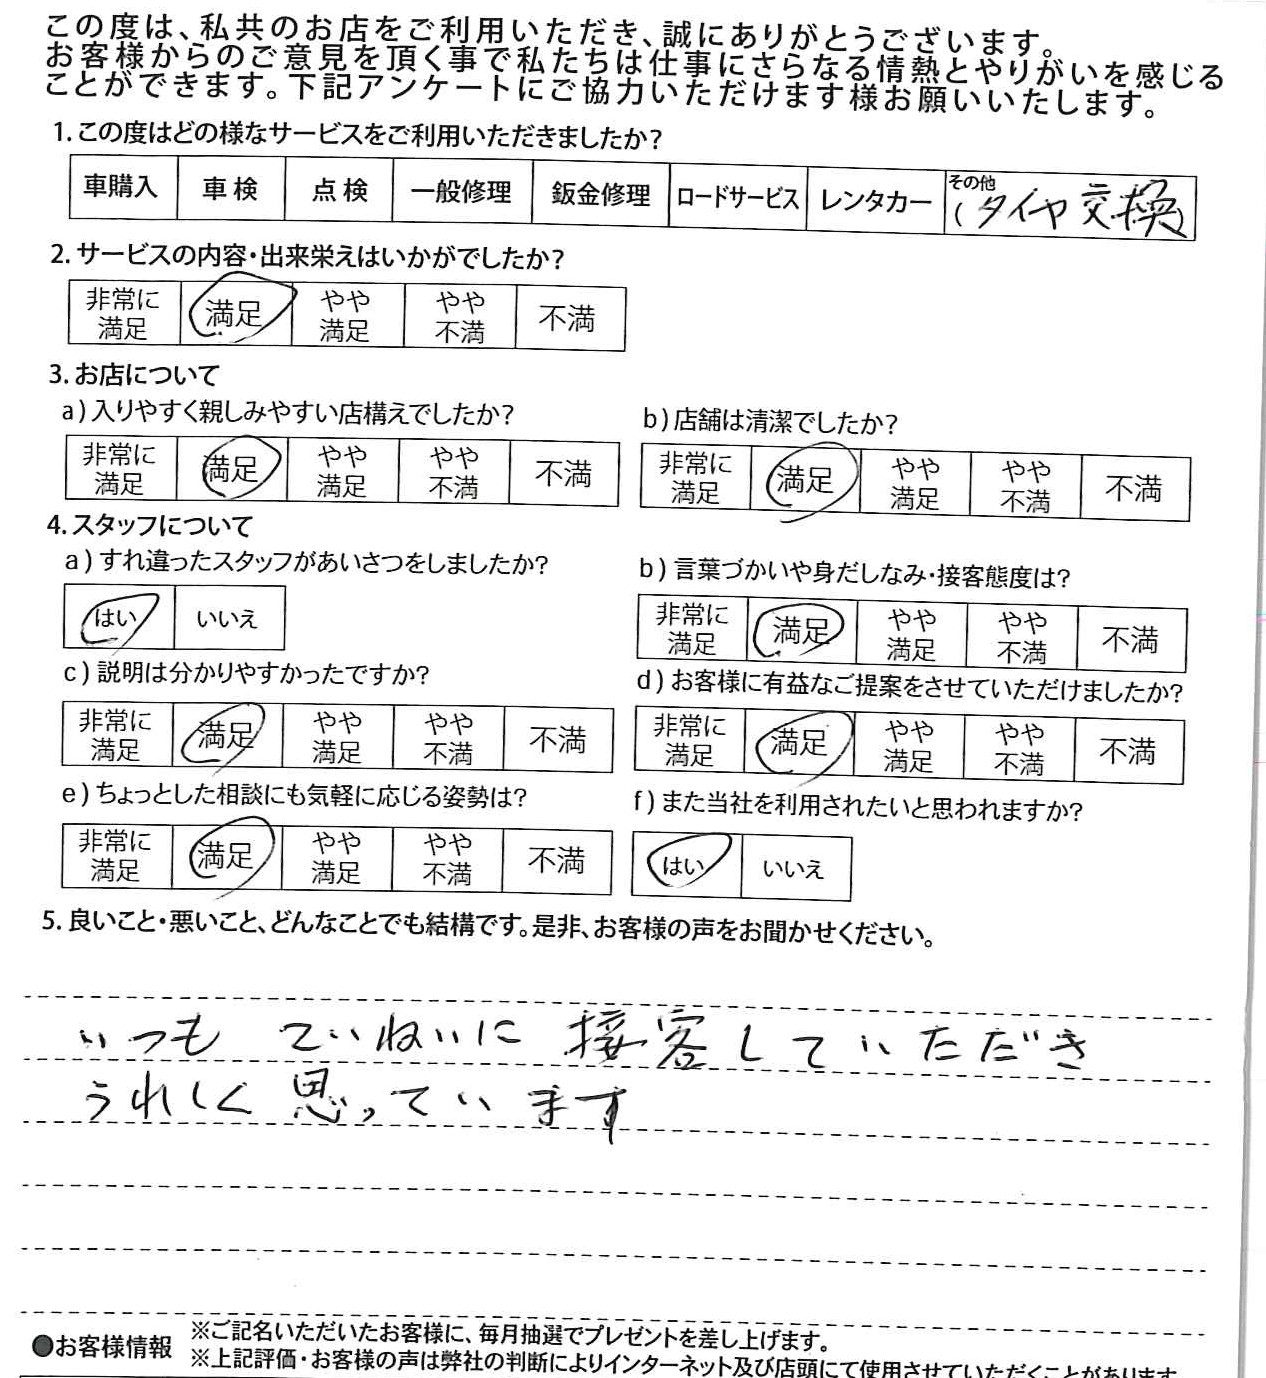 この度は、私共のお店をご利用いただき、誠にありがとうございます。
お客様からのご意見を頂く事で私たちは仕事にさらなる情熱とやりがいを感じる
ことができます。下記アンケートにご協力いただけます様お願いいたします。
1.この度はどの様なサービスをご利用いただきましたか?
車購入 車検 点検 一般修理 鈑金修理 ロードサービス レンタカー その他
(タイヤ交換)
2.サービスの内容・出来栄えはいかがでしたか?
非常に満足 満足 やや満足 やや不満 不満
3.お店について
a)入りやすく親しみやすい店構えでしたか?
非常に満足 満足 やや満足 やや不満 不満
b)店舗は清潔でしたか?
非常に満足 満足 やや満足 やや不満 不満
4.スタッフについて
a)すれ違ったスタッフがあいさつをしましたか?
はい いいえ
b)言葉づかいや身だしなみ・接客態度は?
非常に満足 満足 やや満足 やや不満 不満
c)説明は分かりやすかったですか?
非常に満足 満足 やや満足 やや不満 不満
d)お客様に有益なご提案をさせていただけましたか?
非常に満足 満足 やや満足 やや不満 不満
e)ちょっとした相談にも気軽に応じる姿勢は?
非常に満足 満足 やや満足 やや不満 不満
f)また当社を利用されたいと思われますか?
はい いいえ
5.良いこと・悪いこと、どんなことでも結構です。是非、お客様の声をお聞かせください。
いつも ていねいに 接客していただき
うれしく 思っています
●お客様情報
※ご記名いただいたお客様に、毎月抽選でプレゼントを差し上げます。
※上記評価・お客様の声は弊社の判断によりインターネット及び店頭にて使用させていただくことがあります